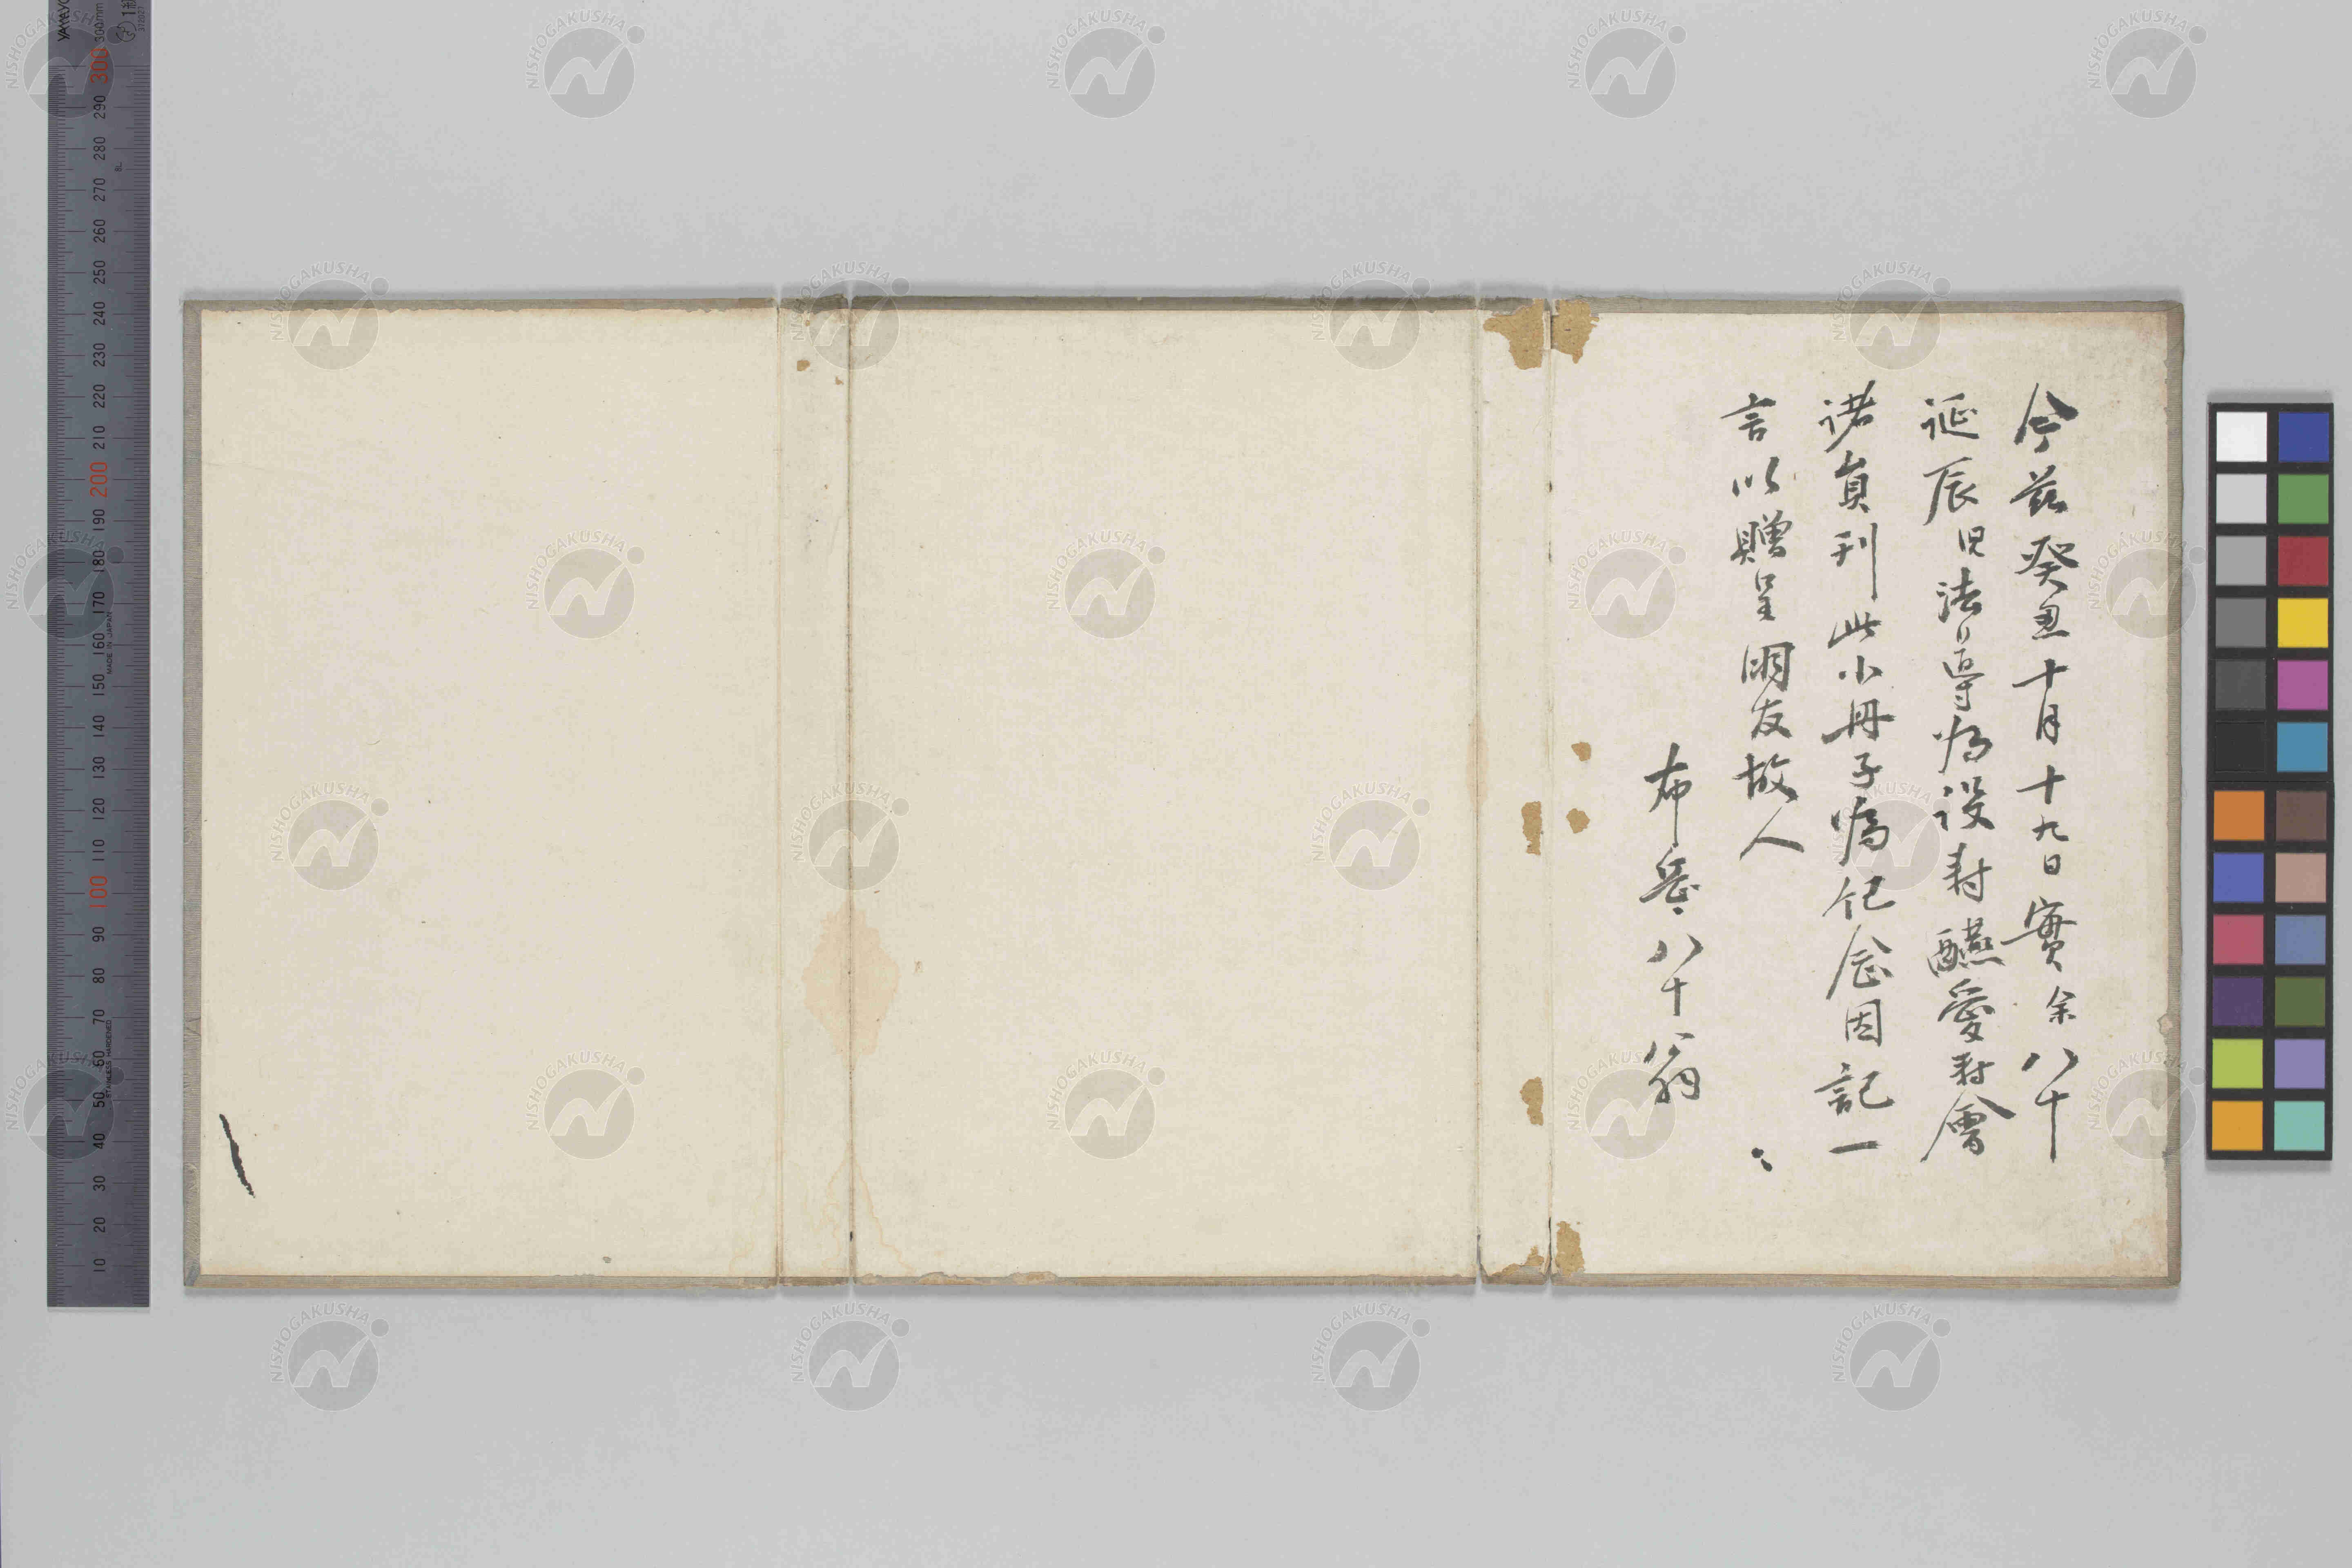 今茲癸丑十月十九日實余八十
誕辰児法導為設寿醼爰寿會
諸員刊此小冊子為紀念因記一
言以贈呈朋友故人
布岳八十翁
NISHOGAKUSHA
300 290 280 270 260 250 240 230 220 210 200 190 180 170 160 150 140 130 120 110 100 90 80 70 60 50 40 30 20 10
MADE IN JAPAN
STAINLESS HARDENED